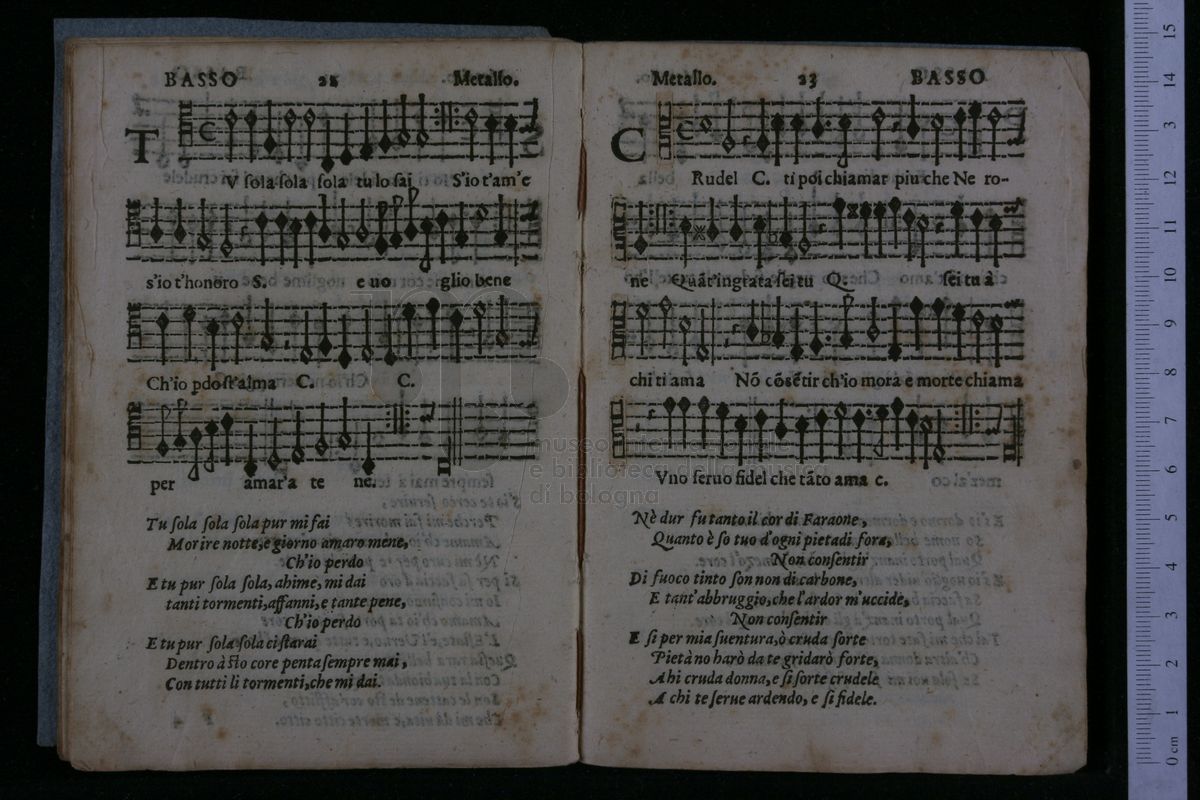 BASSO 22 Metallo.
T
V sola sola sola tu lo sai S'io t'am'e
s'io t'honoro S. e uo glio bene
Ch'io pdo st'alma C. Ch'io C.
per amar'a te ne.
Tu sola sola sola pur mi fai
Morire notte, e giorno amaro mene,
Ch'io perdo
E tu pur sola sola, ahime, mi dai
tanti tormenti, affanni, e tante pene,
Ch'io perdo
E tu pur sola sola ci starai
Dentro à sto core penta sempre mai,
Con tutti li tormenti, che mi dai.
Metallo. 23 BASSO
C
Rudel C. ti poi chiamar piu che Ne ro-
ne Quãt'ingrata sei tu Q. sei tu à
chi ti ama Nõ cõsẽtir ch'io mora e morte chiama
Vno seruo fidel che tãto ama c.
Nè dur fu tanto il cor di Faraone,
Quanto è so tuo d'ogni pietadi fora,
Non consentir
Di fuoco tinto son non di carbone,
E tant'abbruggio, che l'ardor m'uccide,
Non consentir
E si per mia suentura, ò cruda sorte
Pietà no harò da te gridarò forte,
Ahi cruda donna, e si sorte crudele
A chi te serue ardendo, e si fidele.
museo internazionale
e biblioteca della musica
di bologna
15
14
13
12
11
10
9
8
7
6
5
4
3
2
1
0 cm